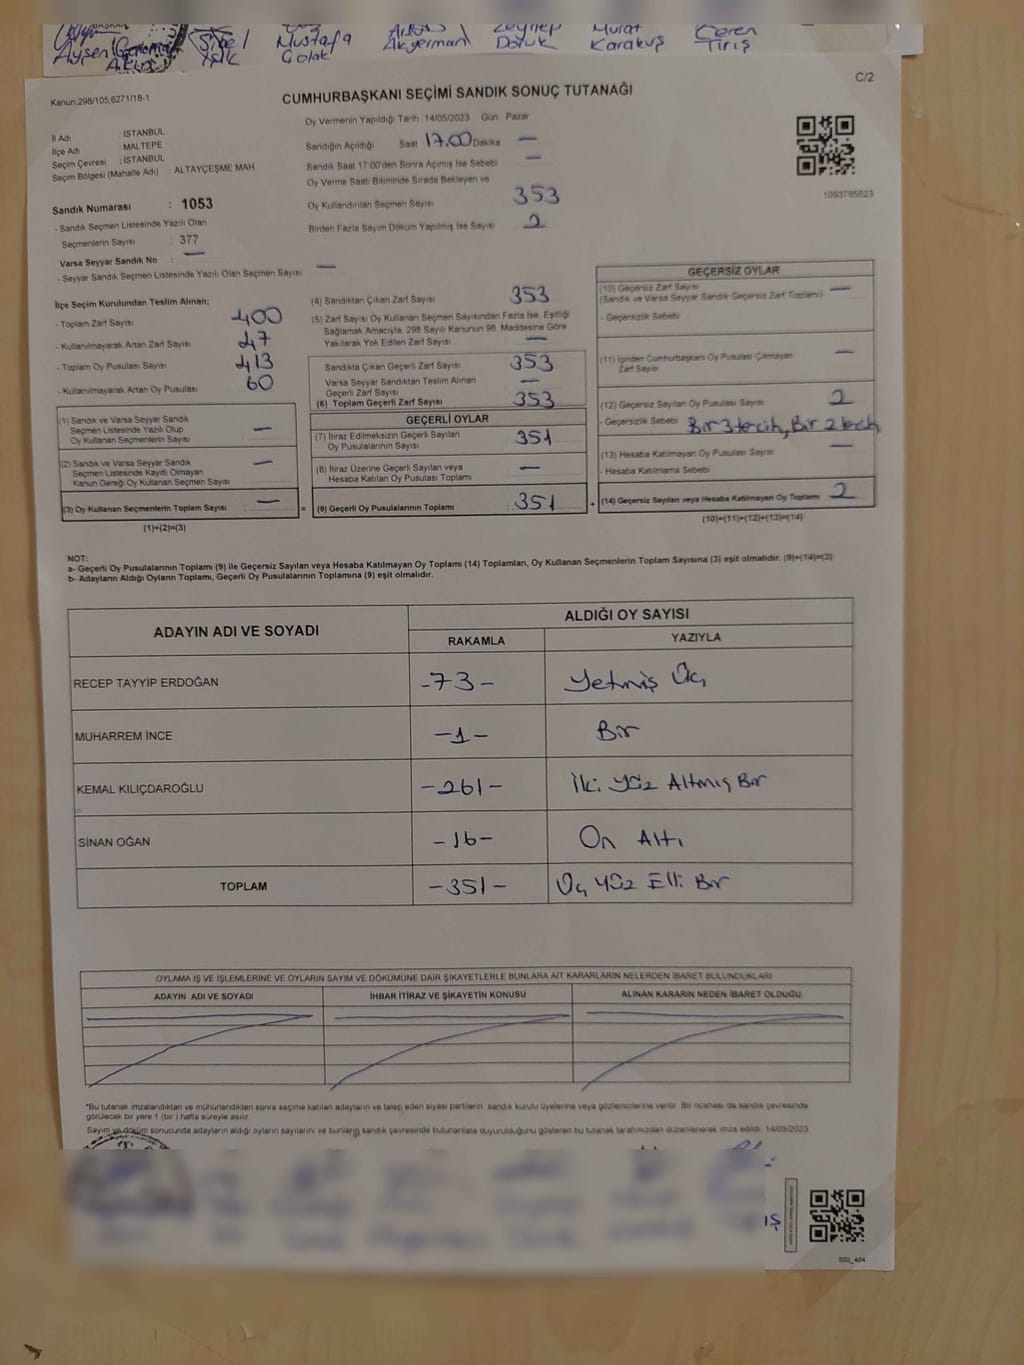 Ayşen
Mustafa Çolak
Arzu Akyerman
Zeynep Doruk
Murat Karakuş
Ceren Tiriş
C/2
Kanun:298/105;6271/18-1
CUMHURBAŞKANI SEÇİMİ SANDIK SONUÇ TUTANAĞI
İl Adı : İSTANBUL
İlçe Adı MALTEPE
Seçim Çevresi : İSTANBUL
Seçim Bölgesi (Mahalle Adı) : ALTAYÇEŞME MAH
Sandık Numarası : 1053
- Sandık Seçmen Listesinde Yazılı Olan
Seçmenlerin Sayısı : 377
Varsa Seyyar Sandık No : —
- Seyyar Sandık Seçmen Listesinde Yazılı Olan Seçmen Sayısı —
Oy Vermenin Yapıldığı Tarih 14/05/2023 Gün Pazar
Sandığın Açıldığı Saat 17.00 Dakika —
Sandık Saat 17:00'den Sonra Açılmış İse Sebebi —
Oy Verme Saati Bitiminde Sırada Bekleyen ve
Oy Kullandırılan Seçmen Sayısı 353
Birden Fazla Sayım Döküm Yapılmış İse Sayısı 2
1093785523
İlçe Seçim Kurulundan Teslim Alınan;
- Toplam Zarf Sayısı 400
- Kullanılmayarak Artan Zarf Sayısı 47
- Toplam Oy Pusulası Sayısı 413
- Kullanılmayarak Artan Oy Pusulası 60
(1) Sandık ve Varsa Seyyar Sandık
Seçmen Listesinde Yazılı Olup
Oy Kullanan Seçmenlerin Sayısı —
(2) Sandık ve Varsa Seyyar Sandık
Seçmen Listesinde Kayıtlı Olmayan
Kanun Gereği Oy Kullanan Seçmen Sayısı —
(3) Oy Kullanan Seçmenlerin Toplam Sayısı —
(1)+(2)=(3)
(4) Sandıktan Çıkan Zarf Sayısı 353
(5) Zarf Sayısı Oy Kullanan Seçmen Sayısından Fazla İse, Eşitliği
Sağlamak Amacıyla, 298 Sayılı Kanunun 98. Maddesine Göre
Yakılarak Yok Edilen Zarf Sayısı —
Sandıkta Çıkan Geçerli Zarf Sayısı 353
Varsa Seyyar Sandıktan Teslim Alınan
Geçerli Zarf Sayısı —
(6) Toplam Geçerli Zarf Sayısı 353
GEÇERLİ OYLAR
(7) İtiraz Edilmeksizin Geçerli Sayılan
Oy Pusulalarının Sayısı 351
(8) İtiraz Üzerine Geçerli Sayılan veya
Hesaba Katılan Oy Pusulası Toplamı —
= (9) Geçerli Oy Pusulalarının Toplamı 351 +
GEÇERSİZ OYLAR
(10) Geçersiz Zarf Sayısı —
(Sandık ve Varsa Seyyar Sandık Geçersiz Zarf Toplamı)
- Geçersizlik Sebebi
(11) İçinden Cumhurbaşkanı Oy Pusulası Çıkmayan
Zarf Sayısı —
(12) Geçersiz Sayılan Oy Pusulası Sayısı 2
- Geçersizlik Sebebi Bir 3 tercih, Bir 2 tercih
(13) Hesaba Katılmayan Oy Pusulası Sayısı —
- Hesaba Katılmama Sebebi
(14) Geçersiz Sayılan veya Hesaba Katılmayan Oy Toplamı 2
(10)+(11)+(12)+(13)=(14)
NOT:
a- Geçerli Oy Pusulalarının Toplamı (9) ile Geçersiz Sayılan veya Hesaba Katılmayan Oy Toplamı (14) Toplamları, Oy Kullanan Seçmenlerin Toplam Sayısına (3) eşit olmalıdır. (9)+(14)=(3)
b- Adayların Aldığı Oyların Toplamı, Geçerli Oy Pusulalarının Toplamına (9) eşit olmalıdır.
ADAYIN ADI VE SOYADI ALDIĞI OY SAYISI
RAKAMLA YAZIYLA
RECEP TAYYİP ERDOĞAN -73- Yetmiş Üç
MUHARREM İNCE -1- Bir
KEMAL KILIÇDAROĞLU -261- İki Yüz Altmış Bir
SİNAN OĞAN -16- On Altı
TOPLAM -351- Üç Yüz Elli Bir
OYLAMA İŞ VE İŞLEMLERİNE VE OYLARIN SAYIM VE DÖKÜMÜNE DAİR ŞİKAYETLERLE BUNLARA AİT KARARLARIN NELERDEN İBARET BULUNDUKLARI
ADAYIN ADI VE SOYADI İHBAR İTİRAZ VE ŞİKAYETİN KONUSU ALINAN KARARIN NEDEN İBARET OLDUĞU
*Bu tutanak imzalandıktan ve mühürlendikten sonra seçime katılan adayların ve talep eden siyasi partilerin sandık kurulu üyelerine veya gözlemcilerine verilir. Bir nüshası da sandık çevresinde
görülecek bir yere 1 (bir) hafta süreyle asılır.
Sayım ve döküm sonucunda adayların aldığı oyların sayılarını ve bunların sandık çevresinde bulunanlara duyurulduğunu gösteren bu tutanak tarafımızdan düzenlenerek imza edildi. 14/05/2023
İŞ